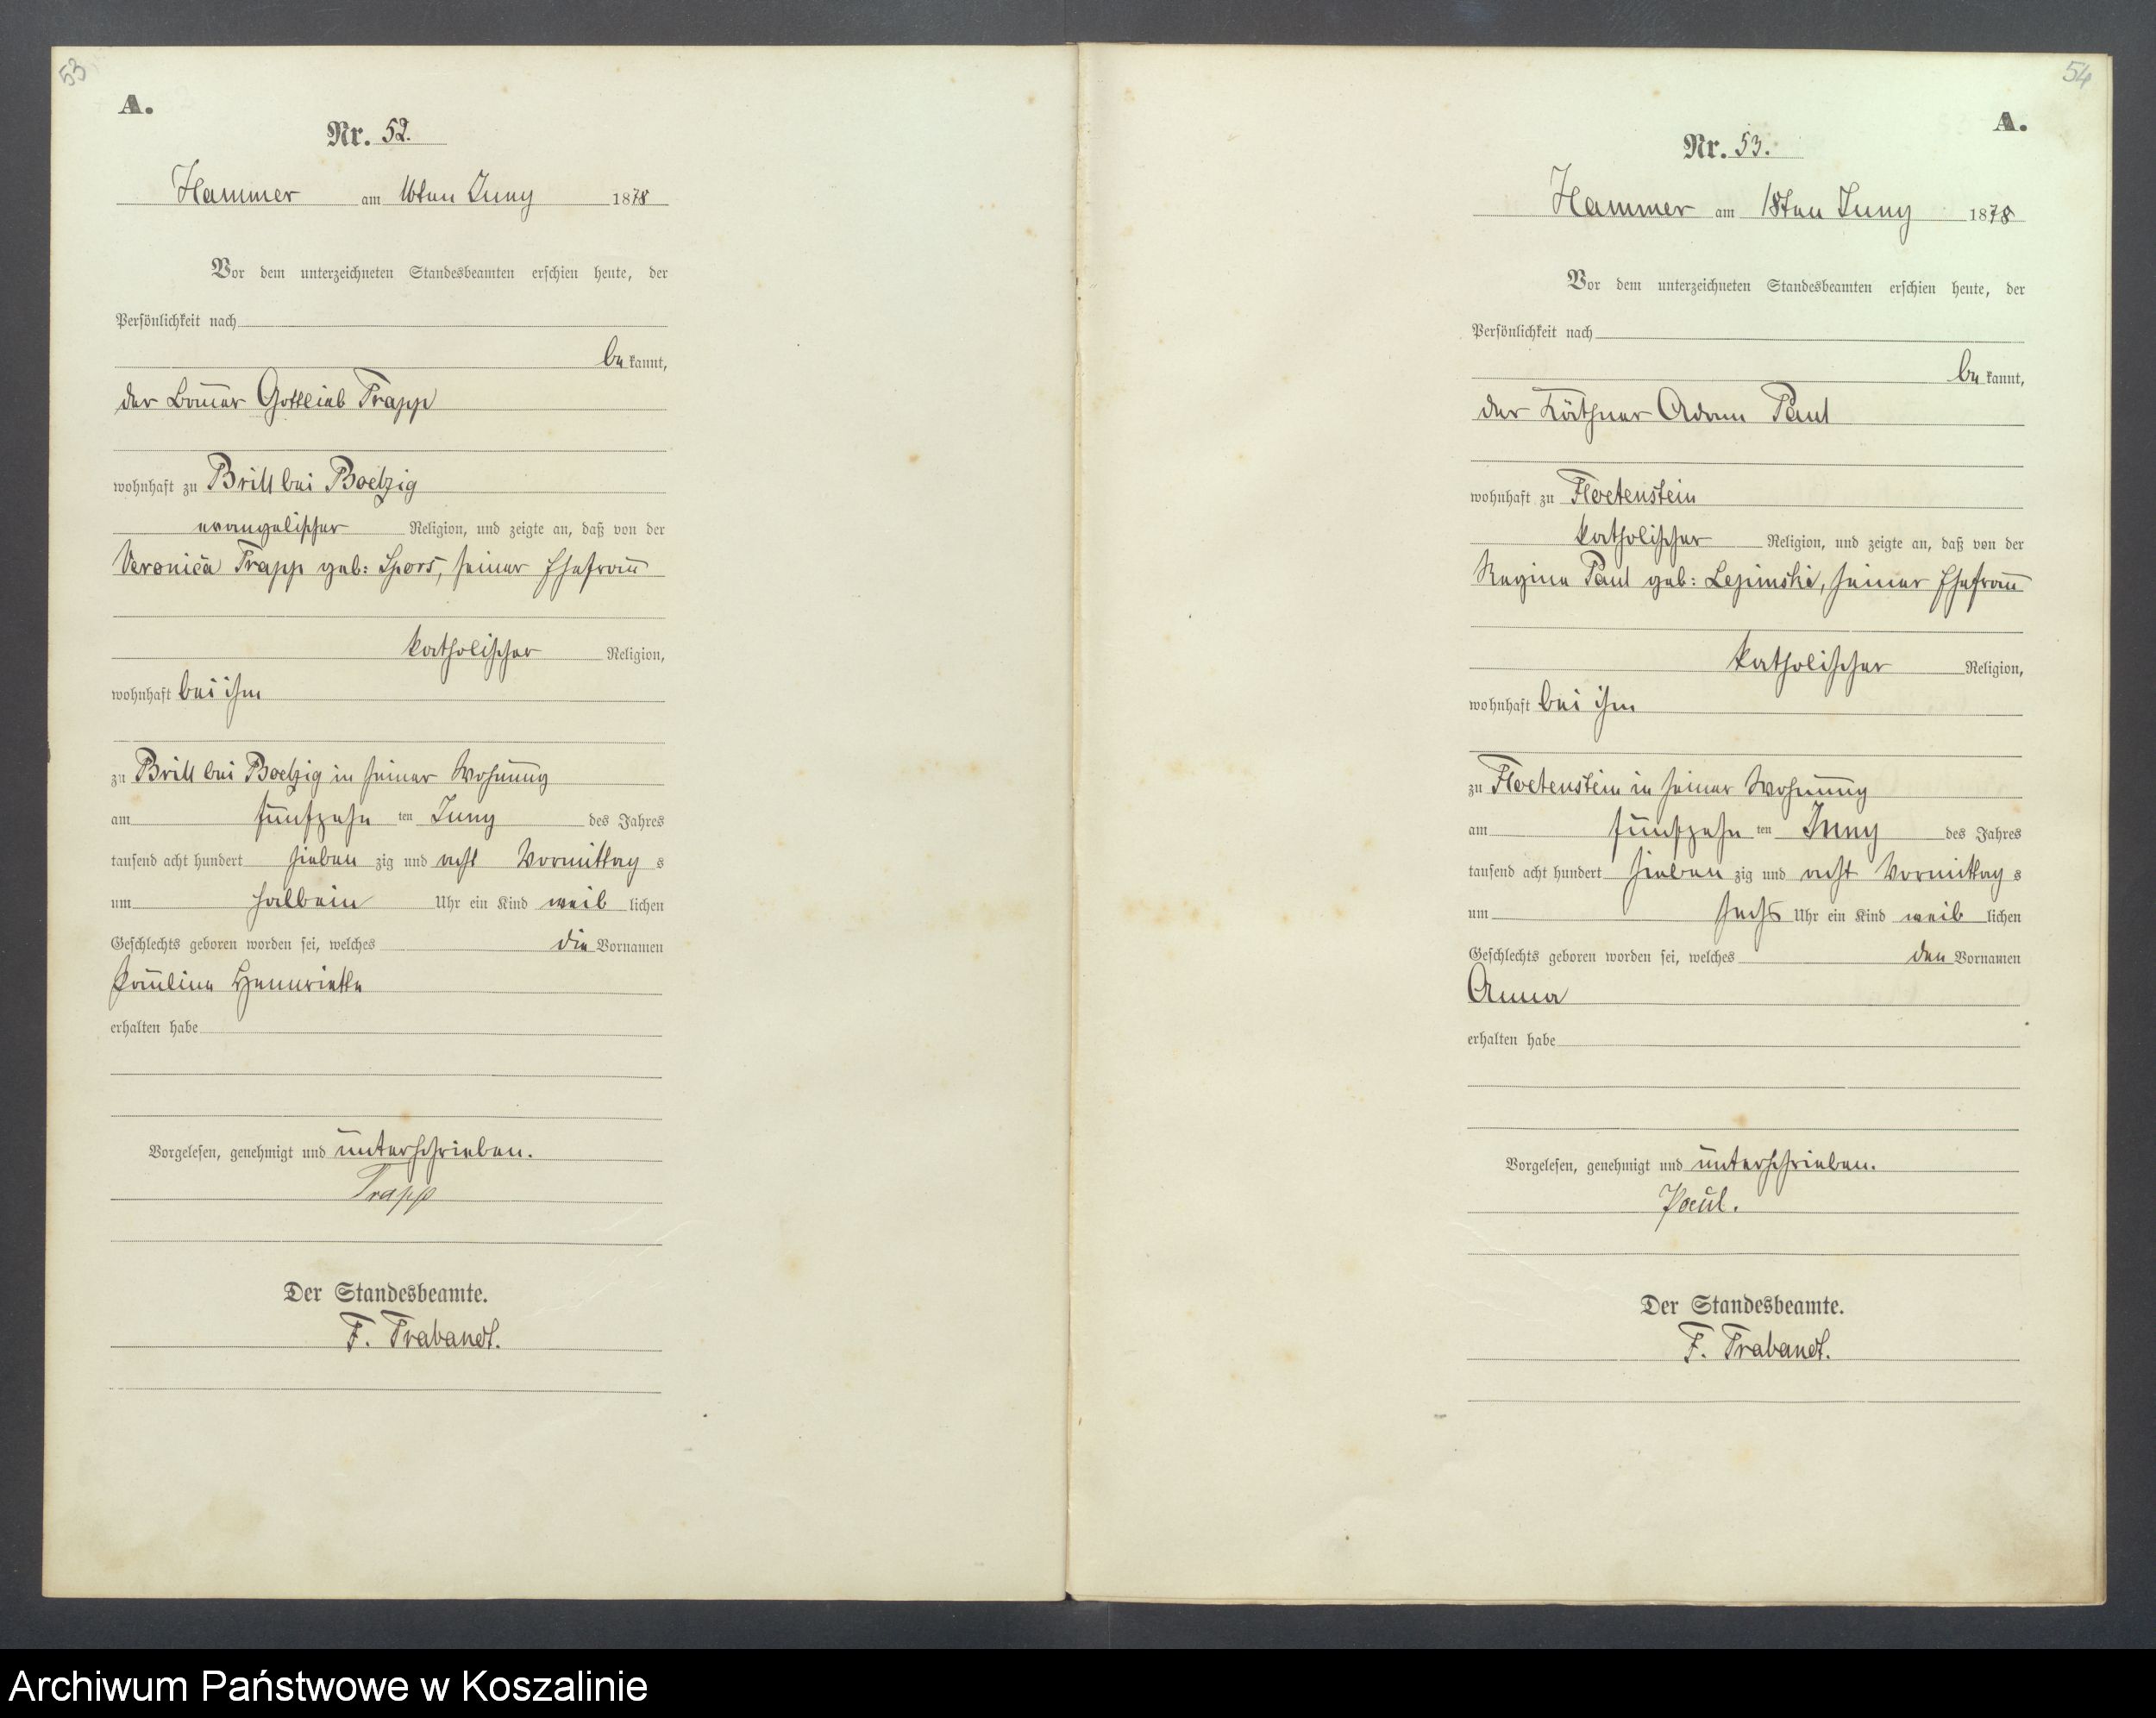 53
A.
Nr. 52.
Hammer am 16ten Juny 1878
Vor dem unterzeichneten Standesbeamten erschien heute, der
Persönlichkeit nach
be kannt,
der Bauer Gottlieb Trapp
wohnhaft zu Brill bei Boelzig
evangelischer Religion, und zeigte an, daß von der
Veronica Trapp geb: Spors, seiner Ehefrau
katholischer Religion,
wohnhaft bei ihm
zu Brill bei Boelzig in seiner Wohnung
am fünfzehn ten Juny des Jahres
tausend acht hundert sieben zig und acht Vormittag s
um halb ein Uhr ein Kind weib lichen
Geschlechts geboren worden sei, welches die Vornamen
Pauline Hennriette
erhalten habe
Vorgelesen, genehmigt und unterschrieben.
Trapp
Der Standesbeamte.
F. Trabandt.
54
A.
Nr. 53.
Hammer am 18ten Juny 1878
Vor dem unterzeichneten Standesbeamten erschien heute, der
Persönlichkeit nach
be kannt,
der Käthner Adam Paul
wohnhaft zu Floetenstein
katholischer Religion, und zeigte an, daß von der
Regine Paul geb: , seiner Ehefrau
katholischer Religion,
wohnhaft bei ihm
zu Floetenstein in seiner Wohnung
am fünfzehn ten Juny des Jahres
tausend acht hundert sieben zig und acht Vormittag s
um sechs Uhr ein Kind weib lichen
Geschlechts geboren worden sei, welches den Vornamen
Anna
erhalten habe
Vorgelesen, genehmigt und unterschrieben.
Paul.
Der Standesbeamte.
F. Trabandt.
Archiwum Państwowe w Koszalinie